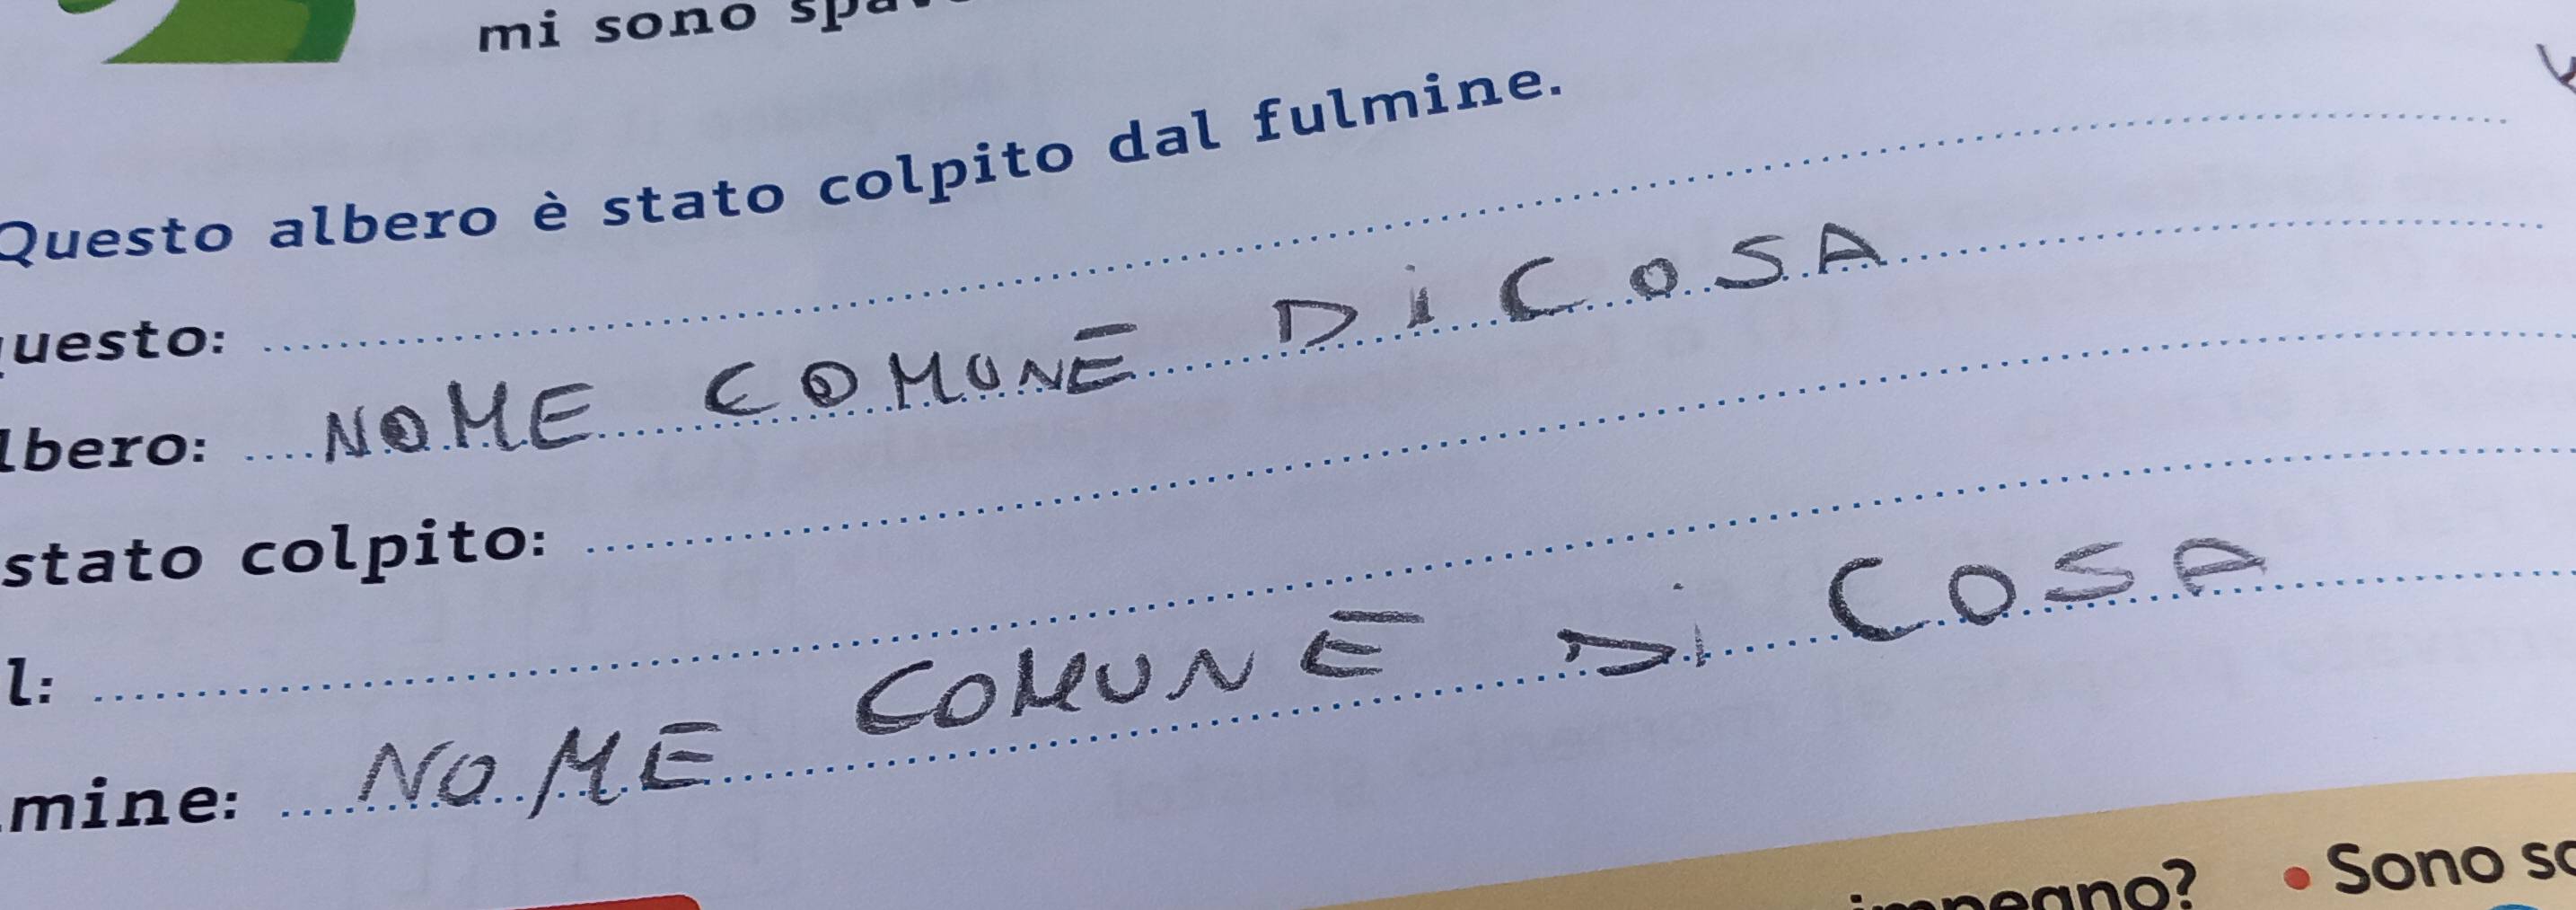 mi sono
Questo albero è stato colpito dal fulmine.
uesto:
lbero: NOME COMUNE Di COSA
stato colpito:
l:
mine: NOME COMUNE Di COSA
impegno? • Sono so